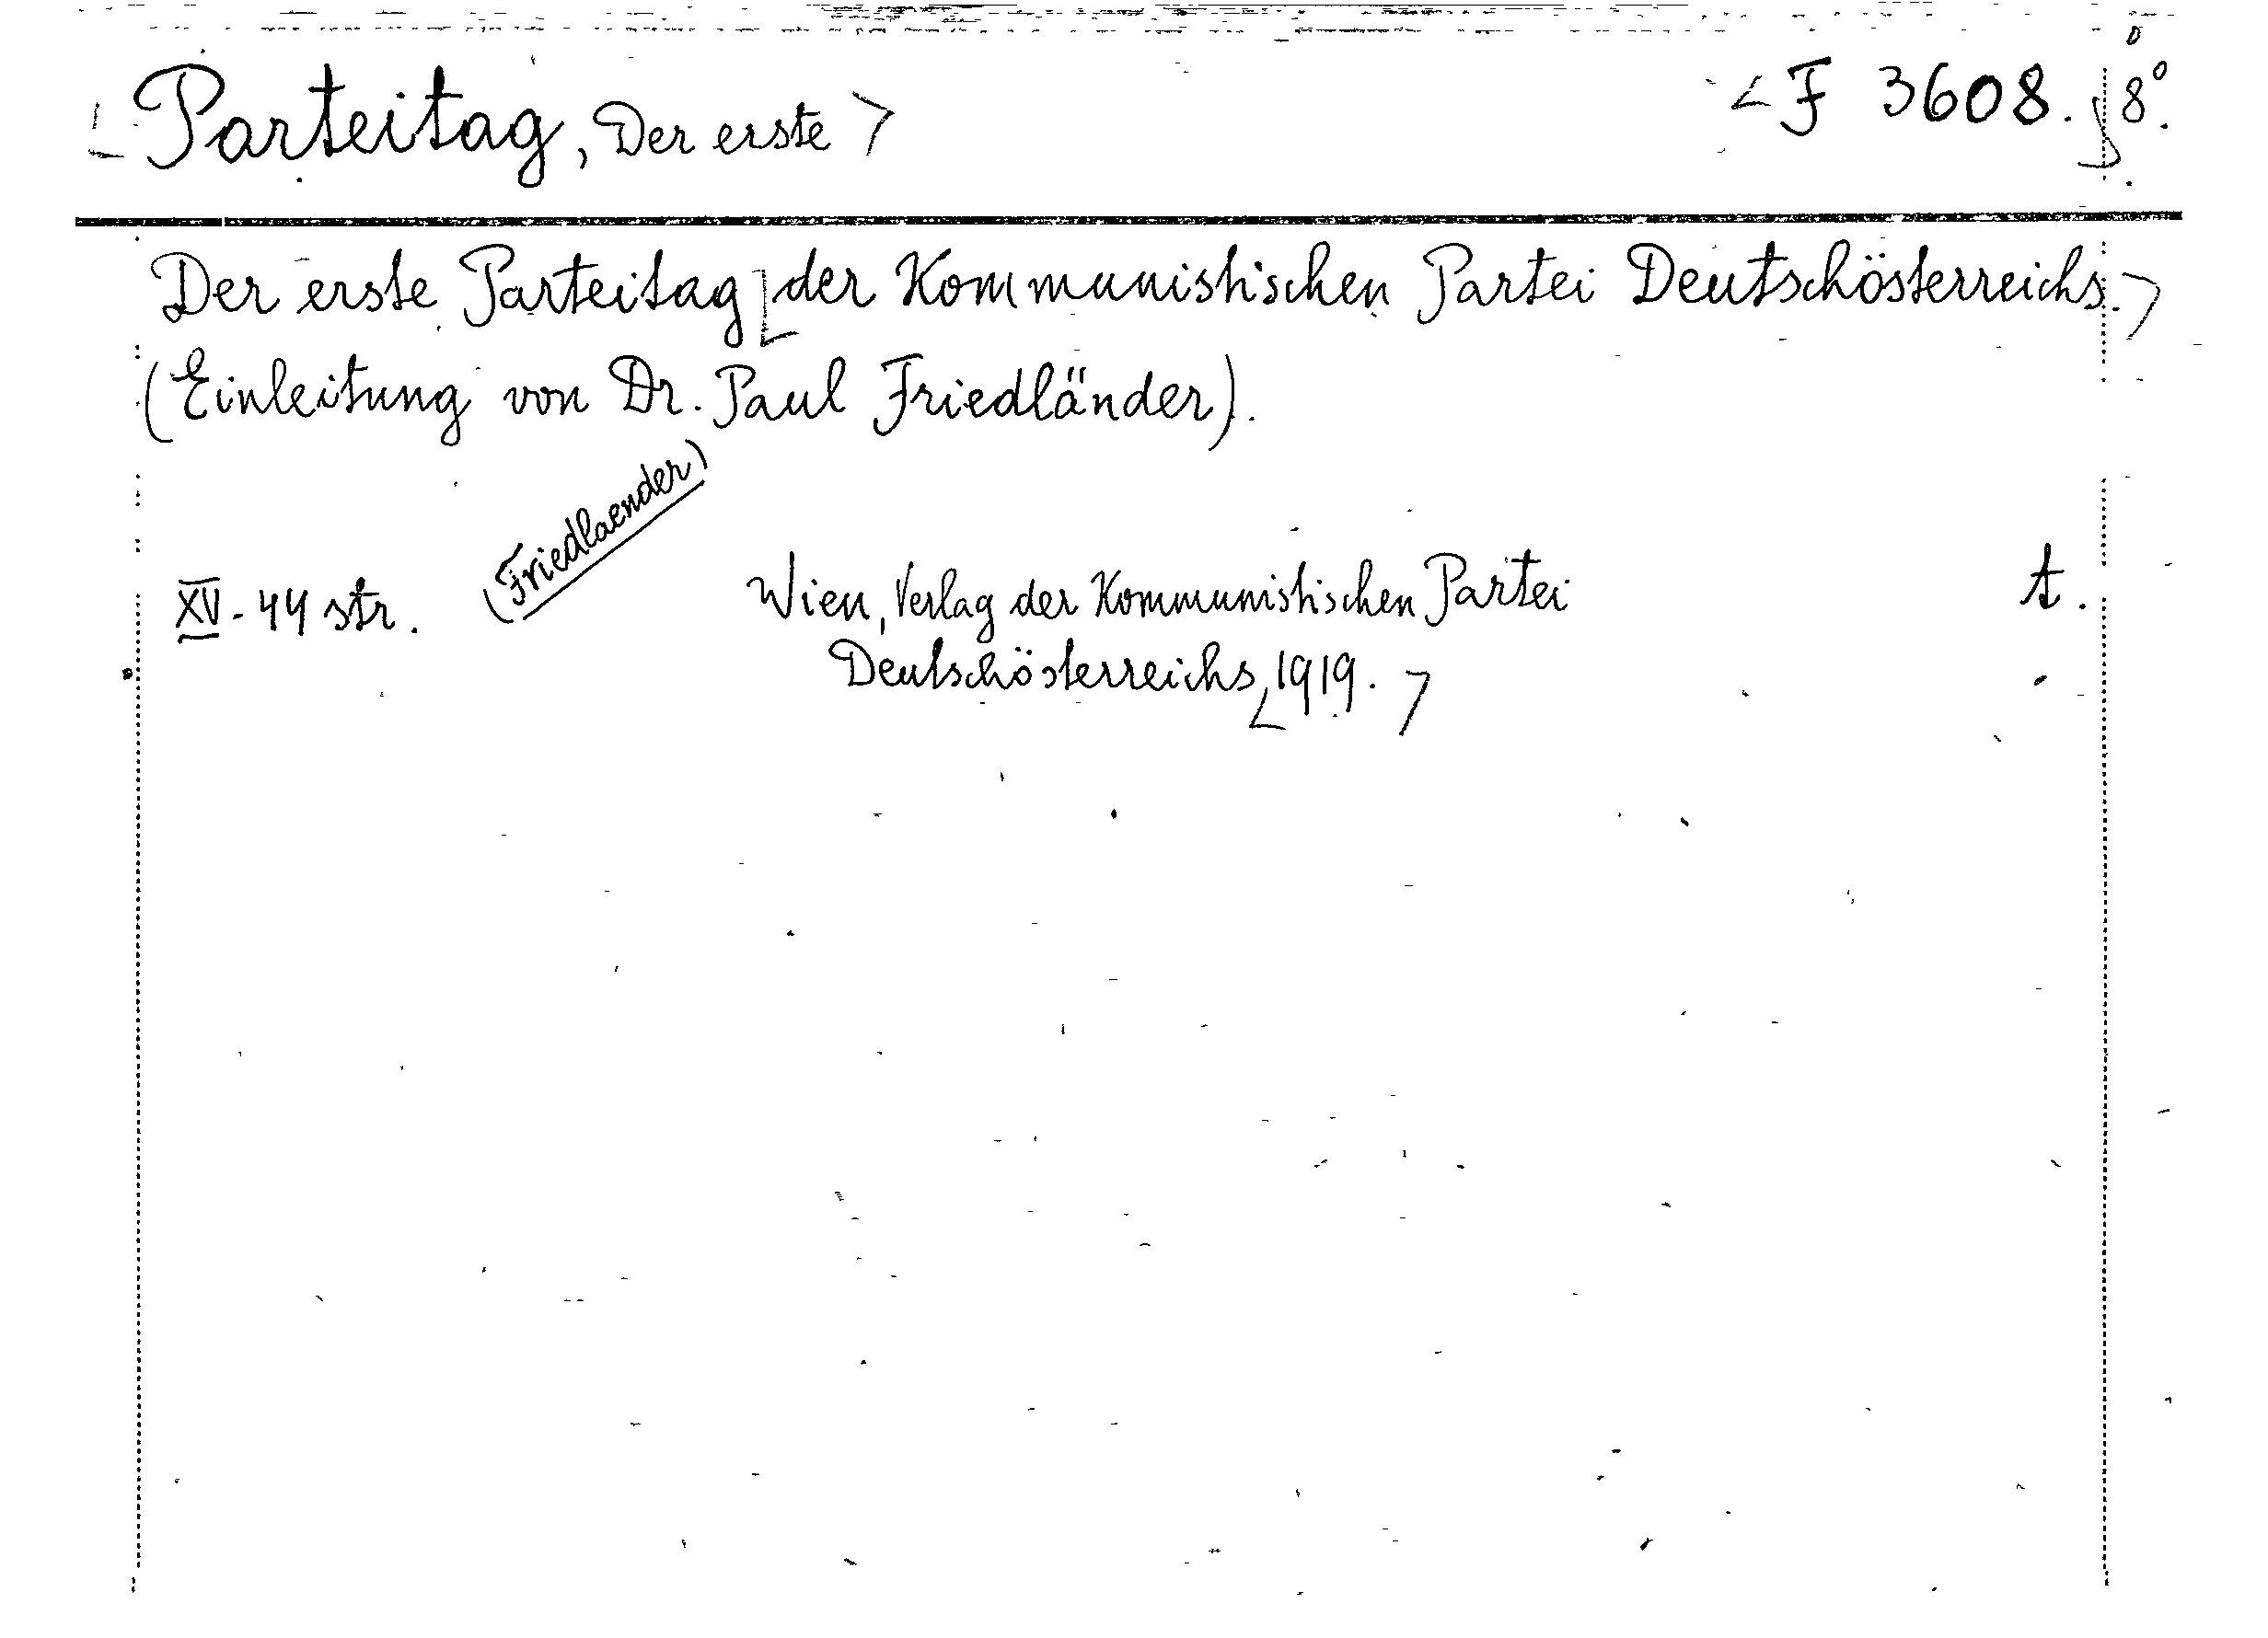 Parteitag, Der erste
F 3608. 8°.
Der erste Parteitag der Kommunistischen Partei Deutschösterreichs.
(Einleitung von Dr. Paul Friedländer).
(Friedlaender)
XV - 44 str.
Wien, Verlag der Kommunistischen Partei
Deutschösterreichs, 1919.
t.